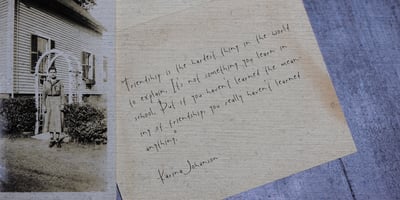 "Friendship is the hardest thing in the world
to explain. It's not something you learn in
school. But if you haven't learned the mean-
ing of friendship, you really haven't learned
anything."
Karina Johanson